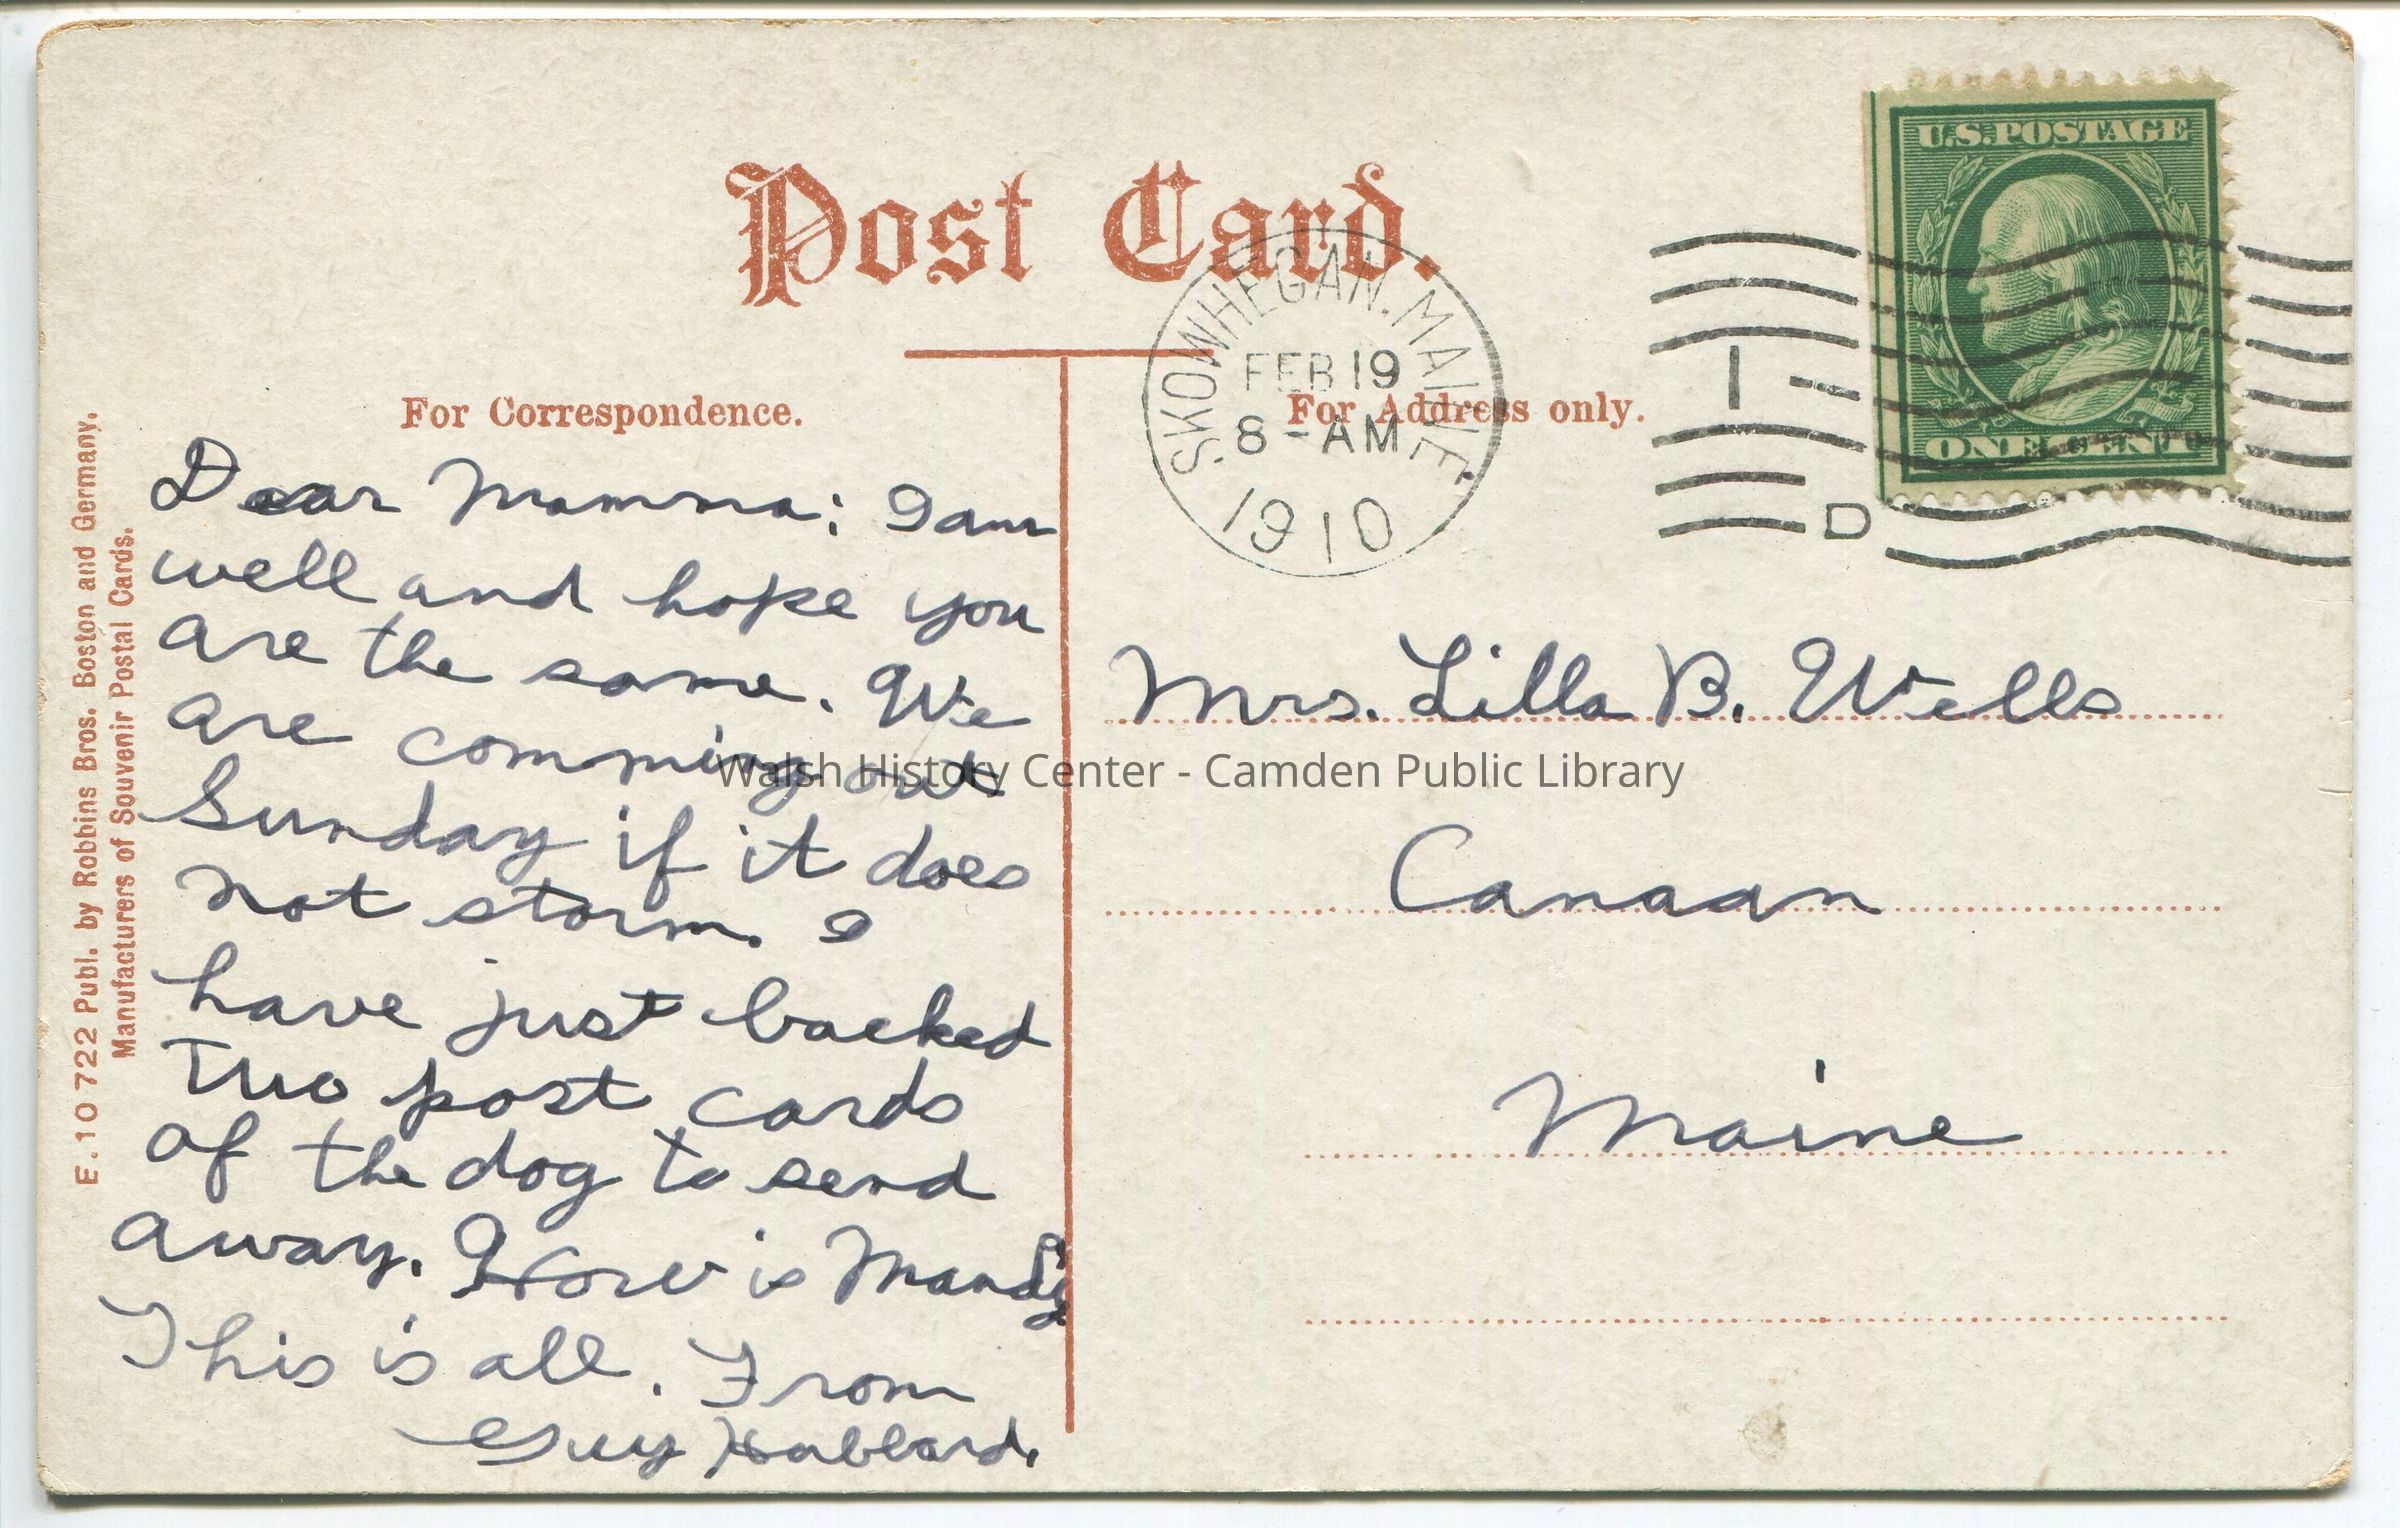 Post Card.
For Correspondence.
For Address only.
SKOWHEGAN. MAINE.
FEB 19
8-AM
1910
1
D
U.S. POSTAGE
ONE CENT
E. 10 722 Publ. by Robbins Bros. Boston and Germany.
Manufacturers of Souvenir Postal Cards.
Dear Mamma; I am
well and hope you
are the same. We
are comming out
Sunday if it does
not storm. I
have just backed
two post cards
of the dog to send
away. How is Mandy.
This is all. From
Guy Hubbard.
Mrs. Lilla B. Wells
Canaan
Maine
Walsh History Center - Camden Public Library